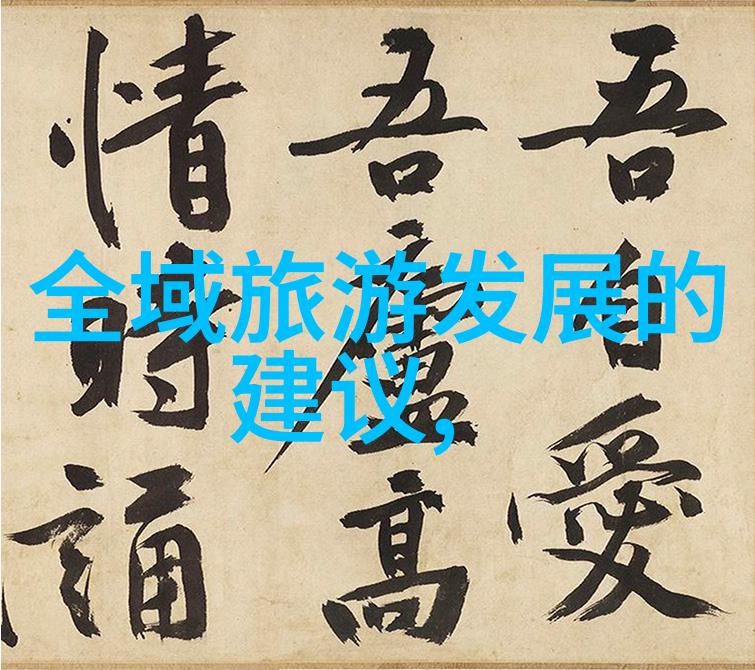 吾自愛
吾廬高
情時誦
全域旅游发展的
建议,